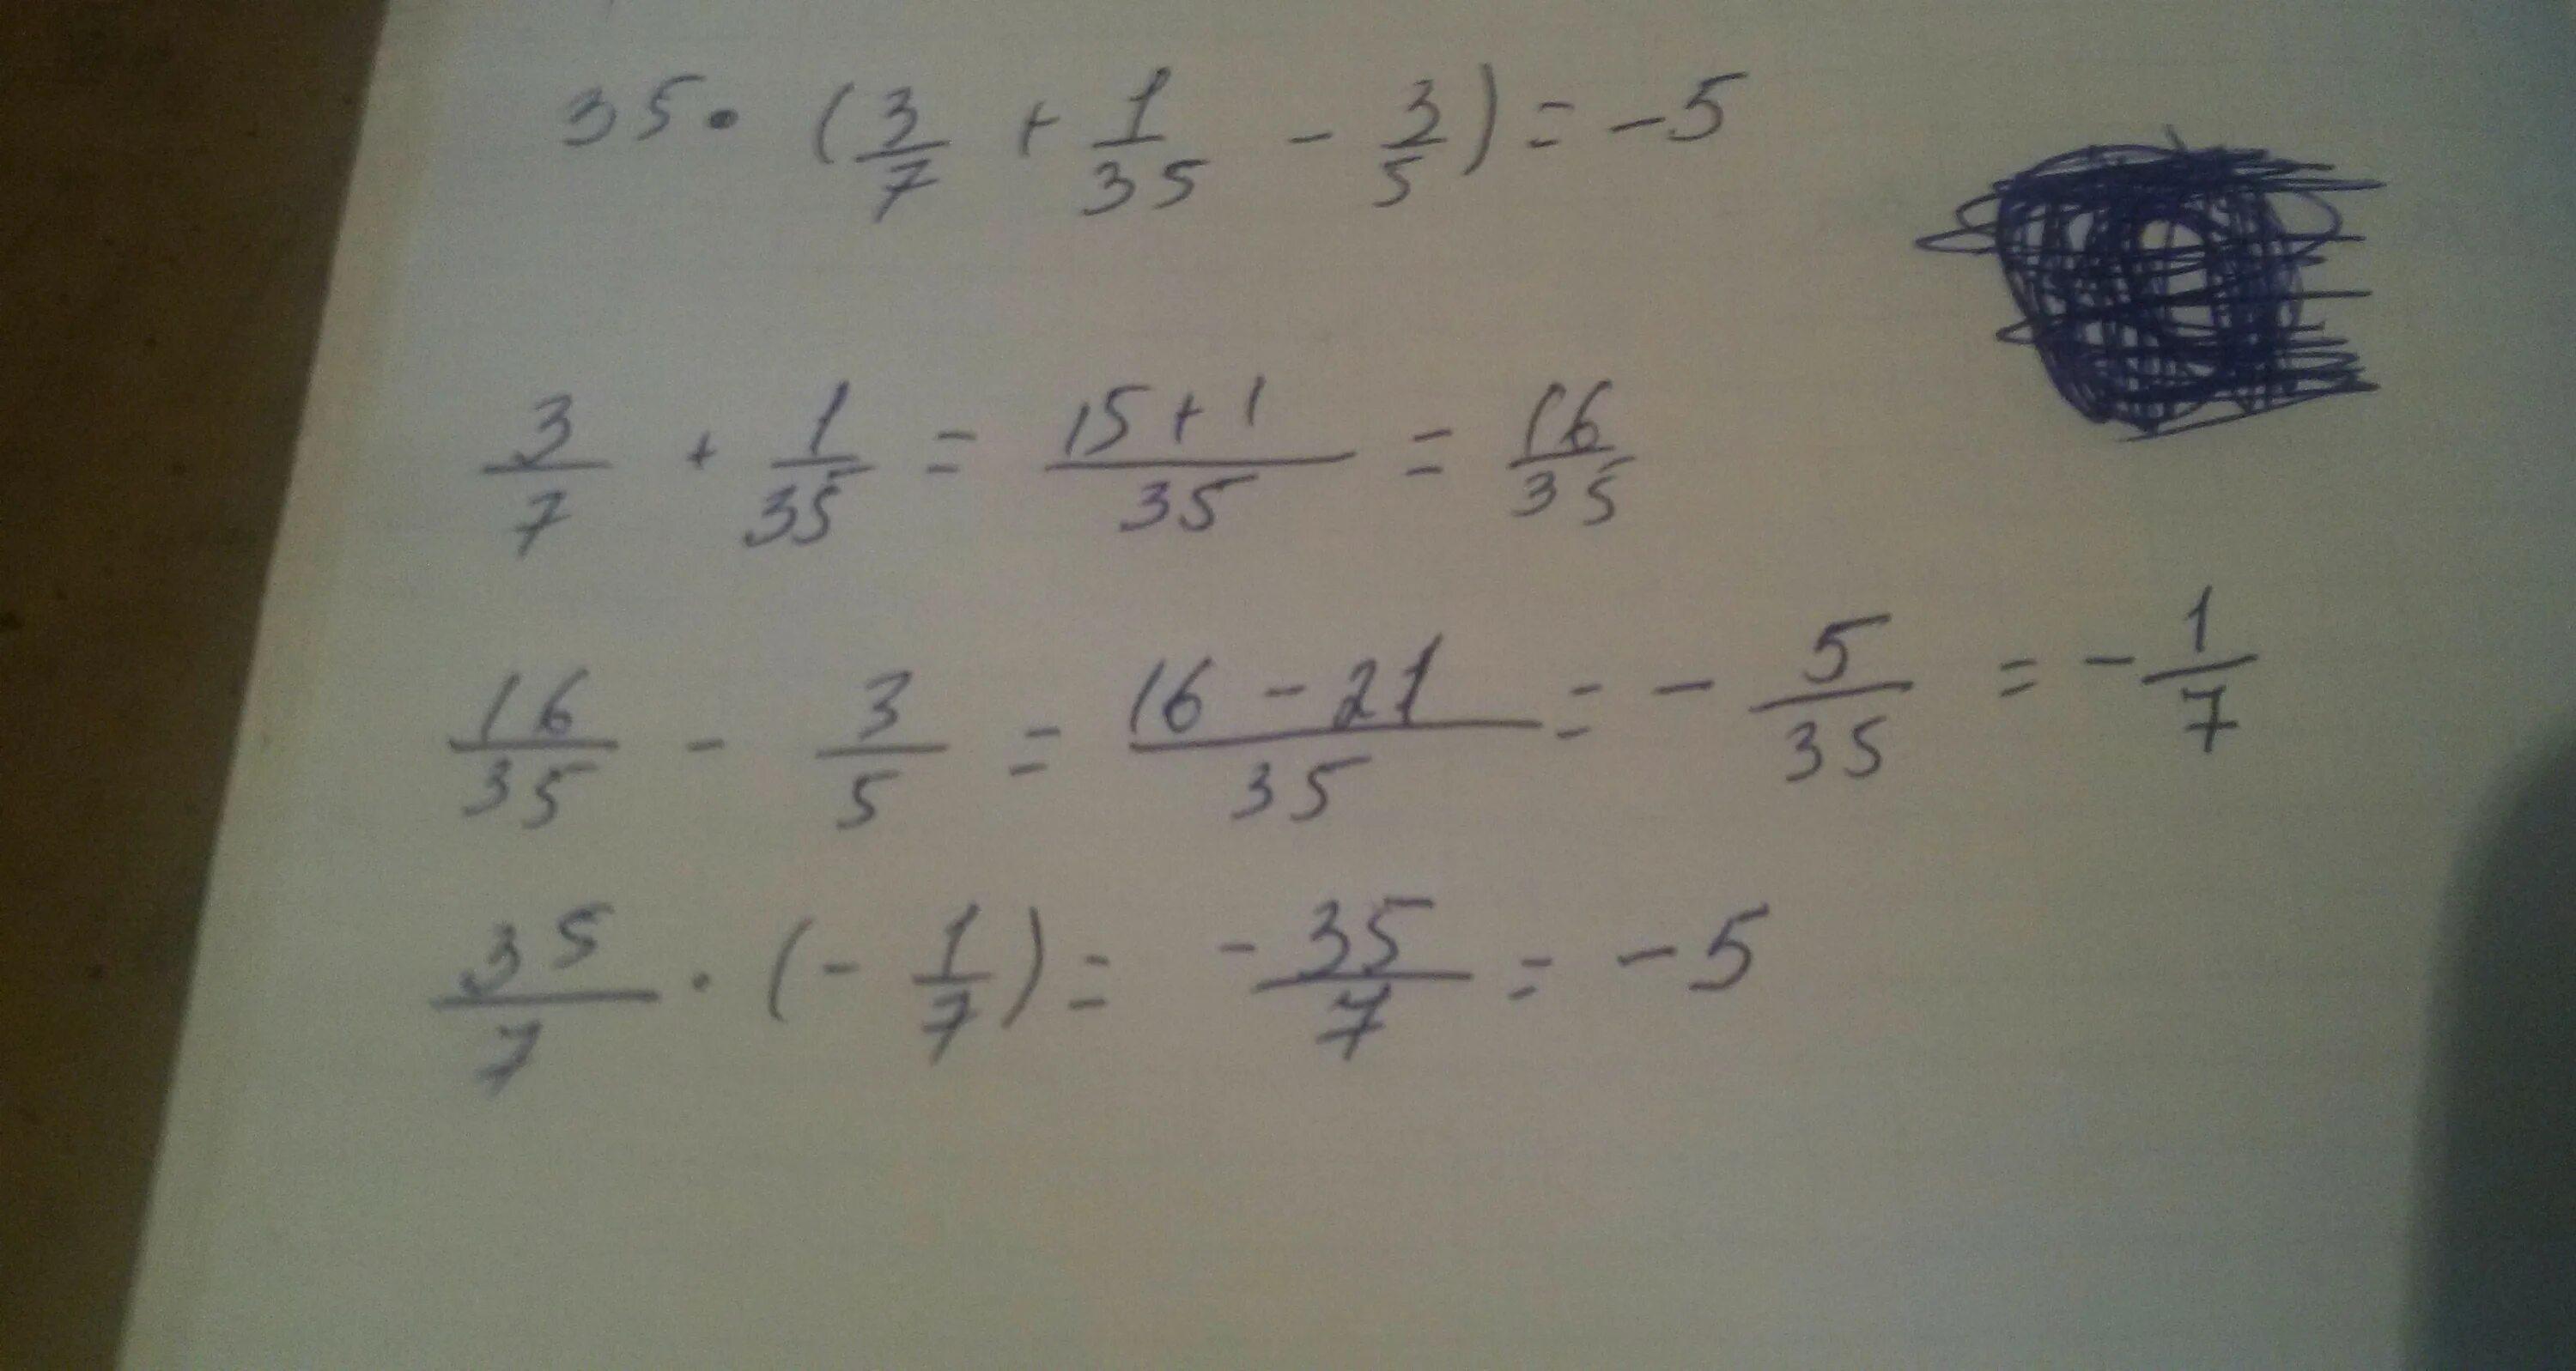 35 · (3/7 + 1/35 - 3/5) = -5
3/7 + 1/35 = (15+1)/35 = 16/35
16/35 - 3/5 = (16-21)/35 = -5/35 = -1/7
35/7 · (-1/7) = -35/7 = -5